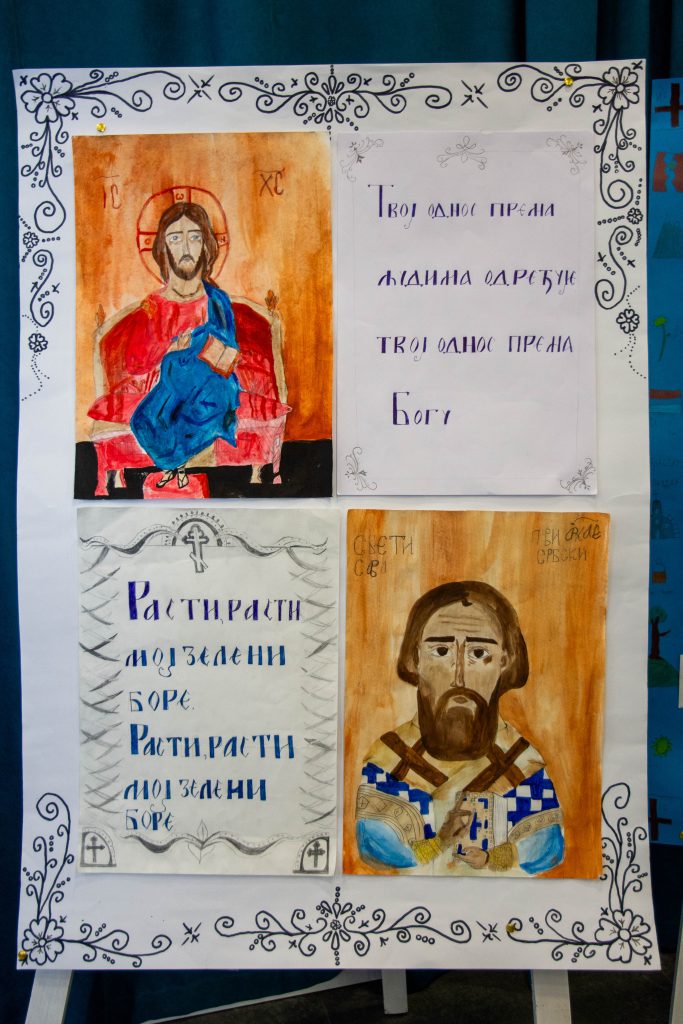 ІС ХС
Твој однос према
људима одређује
твој однос према
Богу
Расти, расти
мој зелени
боре.
Расти, расти
мој зелени
боре
СВЕТИ
САВА
ПРВИ
СРБСКИ